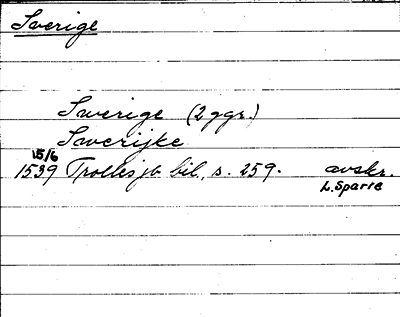 Sverige
Swerige (2 ggr.)
Swerijke
15/6
1539 Trolles jb bil., s. 259. avskr.
L. Sparre